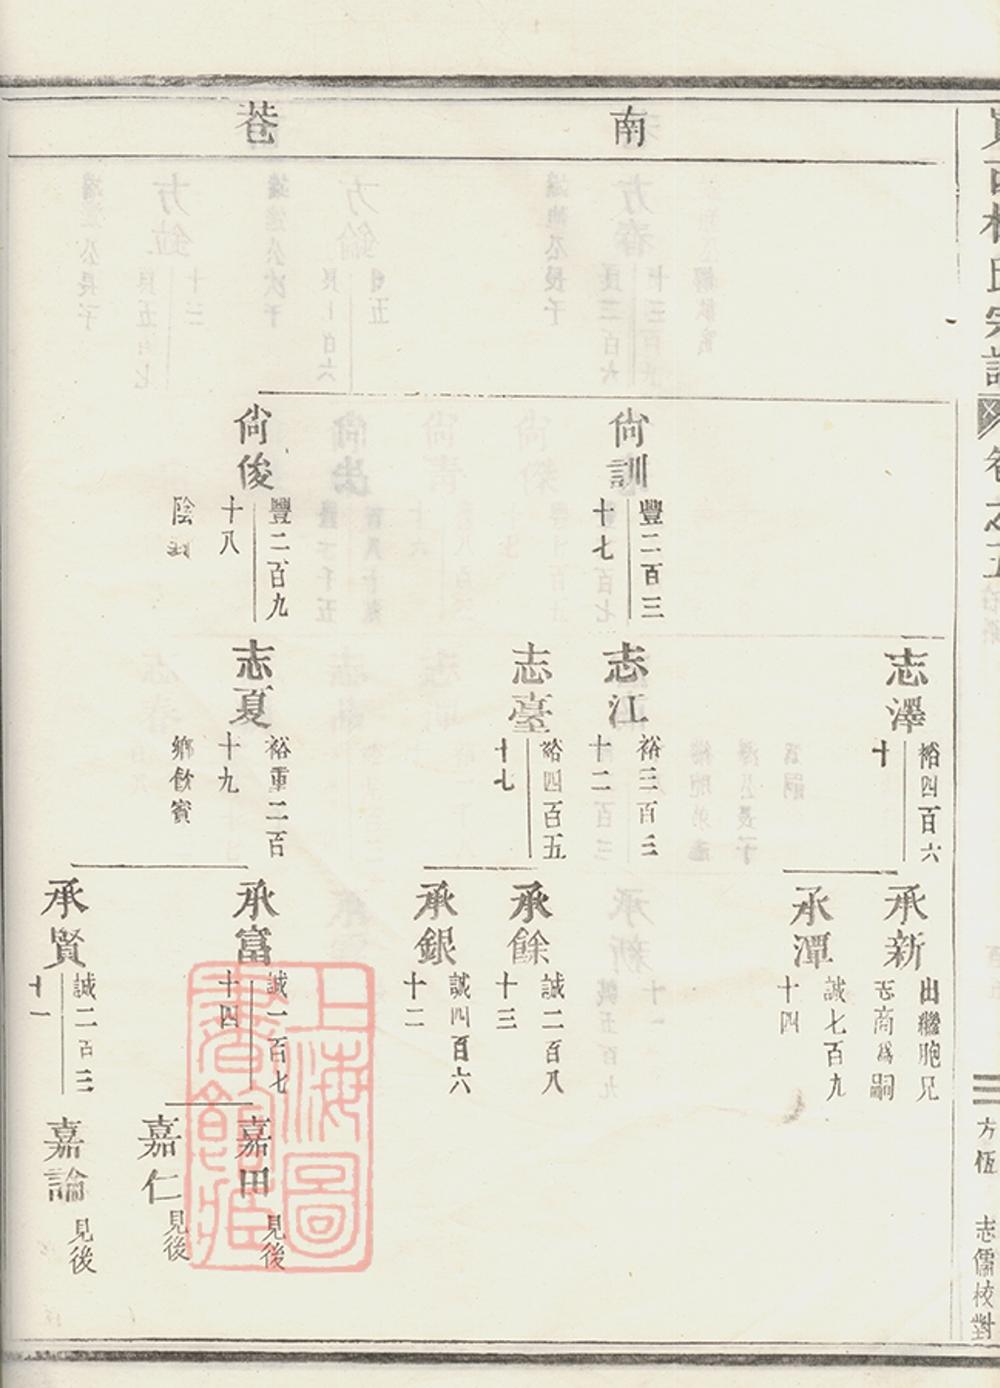 氏宗譜
卷之五
三
方恆
志儒校對
南巷
尙訓
豐二百三
十七
尙俊
豐二百九
十八
陰
志澤
裕四百六
十
志江
裕三百三
十二
志臺
裕四百五
十七
志夏
裕重二百
十九
鄉飮賓
承新
出繼胞兄
志商爲嗣
承潭
誠七百九
十四
承餘
誠二百八
十三
承銀
誠四百六
十二
承富
誠一百七
十四
承賢
誠二百三
十一
嘉田
見後
嘉仁
見後
嘉論
見後
上海圖書館藏